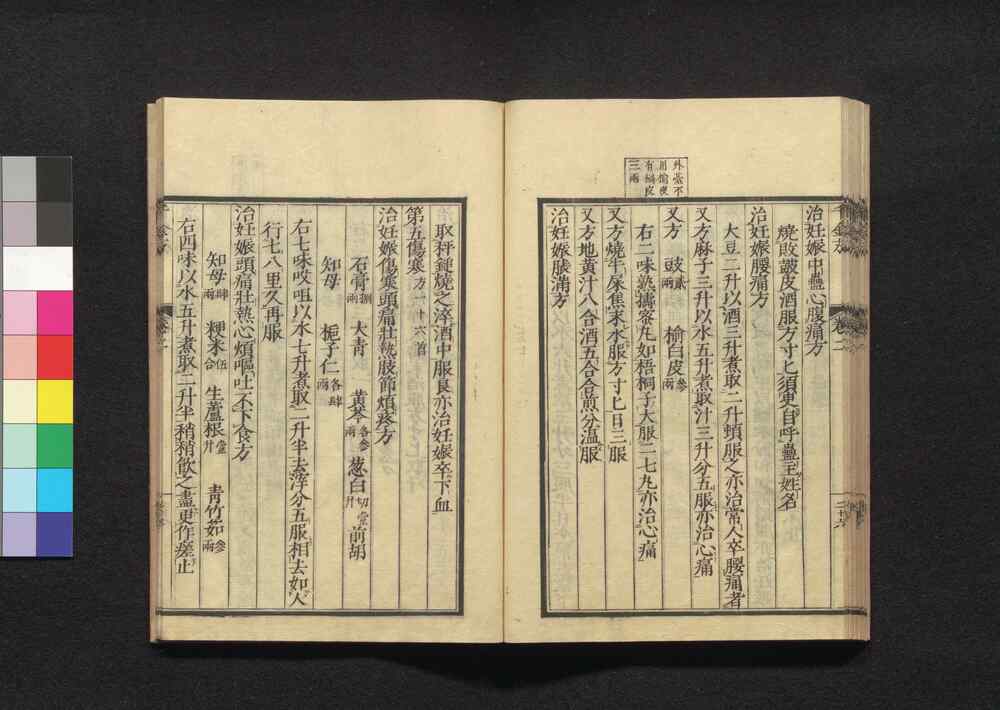 外臺不
用榆皮
有猬皮
三兩
治妊娠中蠱心腹痛方
燒敗皷皮酒服方寸匕須臾自呼蠱主姓名
治妊娠腰痛方
大豆二升以酒三升煮取二升頓服之亦治常人卒腰痛者
又方麻子三升以水五升煮取汁三升分五服亦治心痛
又方 豉貳兩 榆白皮參兩
右二味熟擣蜜丸如梧桐子大服二七丸亦治心痛
又方燒牛屎焦末水服方寸匕日三服
又方地黃汁八合酒五合合煎分溫服
治妊娠脹滿方
治取秤鎚燒之淬酒中服良亦治妊娠卒下血
第五傷寒方一十六首
治妊娠傷寒頭痛壯熱肢節煩疼方
石膏捌兩 大青 黃芩各參兩 葱白切壹升 前胡
知母 梔子仁各肆兩
右七味㕮咀以水七升煮取二升半去滓分五服相去如人
行七八里久再服
治妊娠頭痛壯熱心煩嘔吐不下食方
知母肆兩 粳米伍合 生蘆根壹升 青竹茹參兩
右四味以水五升煮取二升半稍稍飲之盡更作瘥止